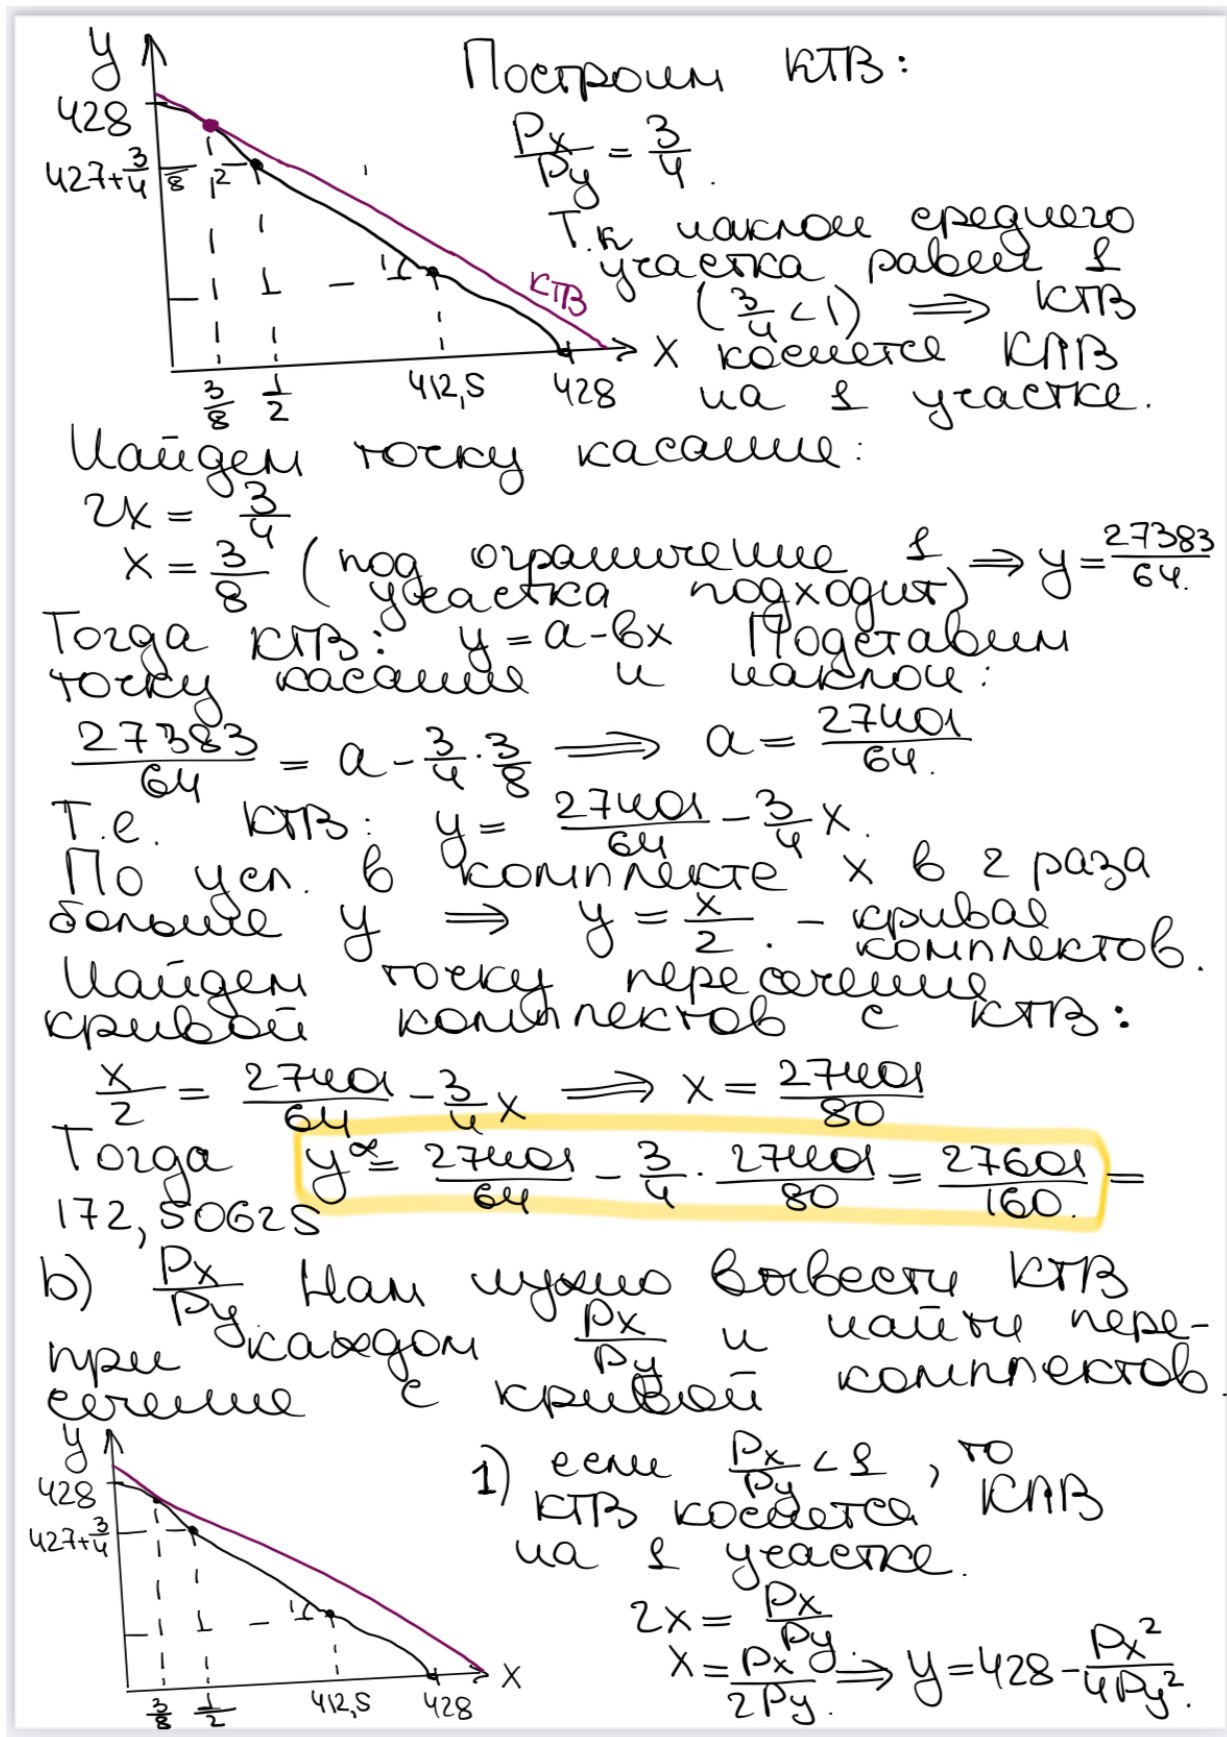 y
428
427+3/4
8
2
1
1
КТВ
x
3/8
1/2
412,5
428
Построим КТВ:
Px/Py = 3/4.
Т.к наклон среднего
участка равен 1
(3/4 < 1) ⟹ КТВ
коснется КПВ
на 1 участке.
Найдем точку касание:
2x = 3/4
x = 3/8 (под ограничение 1 участка подходит) ⟹ y = 27383/64.
Тогда КТВ: y = a - bx Подставим
точку касание и наклон:
27383/64 = a - 3/4 · 3/8 ⟹ a = 27401/64.
Т.е. КТВ: y = 27401/64 - 3/4 x.
По усл. в комплекте x в 2 раза
больше y ⟹ y = x/2. - кривая
комплектов.
Найдем точку пересечение
кривой комплектов с КТВ:
x/2 = 27401/64 - 3/4 x ⟹ x = 27401/80
Тогда y* = 27401/64 - 3/4 · 27401/80 = 27601/160. =
172,50625
b) Px/Py Нам нужно вывести КТВ
при каждом Px/Py и найти пере-
сечение с кривой комплектов.
y
428
427+3/4
1
1
x
3/8
1/2
412,5
428
1) если Px/Py < 1, то
КТВ коснется КПВ
на 1 участке.
2x = Px/Py
x = Px/2Py. ⟹ y = 428 - Px²/4Py².